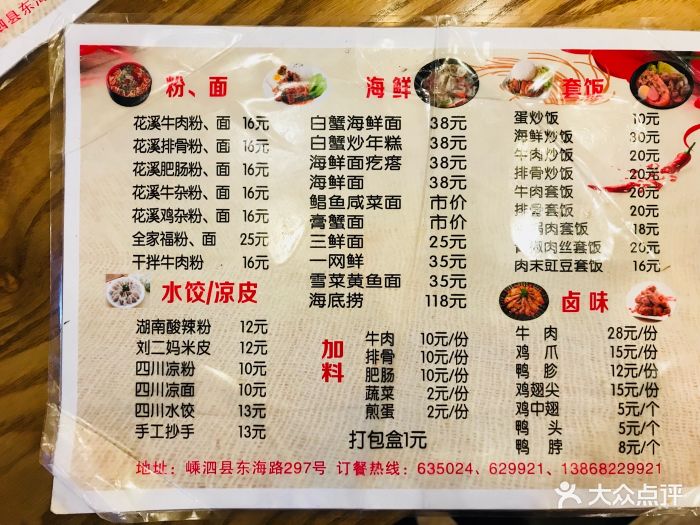 泗县东海
粉、面
花溪牛肉粉、面 16元
花溪排骨粉、面 16元
花溪肥肠粉、面 16元
花溪牛杂粉、面 16元
花溪鸡杂粉、面 16元
全家福粉、面 25元
干拌牛肉粉 16元
水饺/凉皮
湖南酸辣粉 12元
刘二妈米皮 12元
四川凉粉 10元
四川凉面 10元
四川水饺 13元
手工抄手 13元
海鲜
白蟹海鲜面 38元
白蟹炒年糕 38元
海鲜面疙瘩 38元
海鲜面 38元
鲳鱼咸菜面 市价
膏蟹面 市价
三鲜面 25元
一网鲜 35元
雪菜黄鱼面 35元
海底捞 118元
加料
牛肉 10元/份
排骨 10元/份
肥肠 10元/份
蔬菜 2元/份
煎蛋 2元/份
打包盒1元
套饭
蛋炒饭 10元
海鲜炒饭 30元
牛肉炒饭 20元
排骨炒饭 20元
牛肉套饭 20元
排骨套饭 20元
肉套饭 18元
椒肉丝套饭 20元
肉末豇豆套饭 16元
卤味
牛肉 28元/份
鸡爪 15元/份
鸭胗 12元/份
鸡翅尖 15元/份
鸡中翅 5元/个
鸭头 5元/个
鸭脖 8元/个
地址：嵊泗县东海路297号 订餐热线：635024、629921、13868229921
大众点评